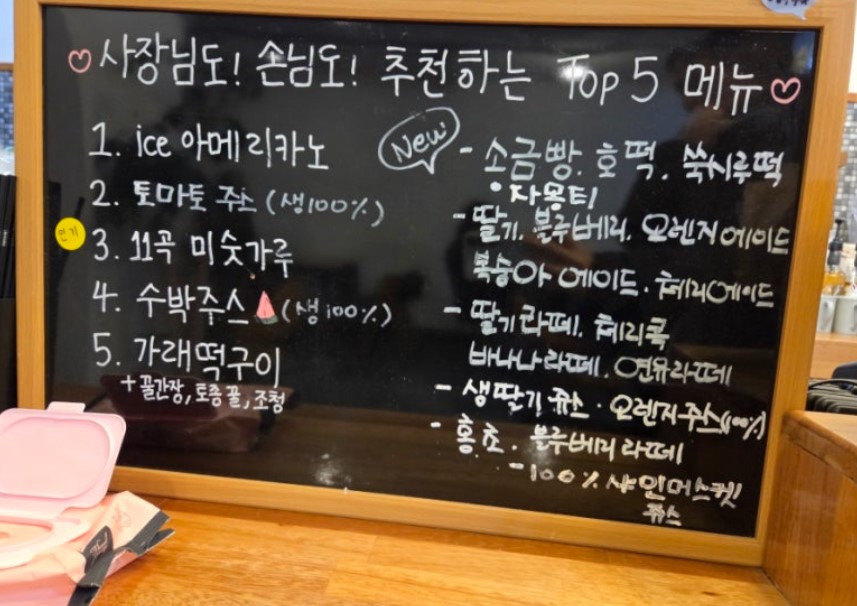 ♡사장님도! 손님도! 추천하는 Top 5 메뉴♡
1. ice 아메리카노
2. 토마토 주스 (생100%)
인기
3. 11곡 미숫가루
4. 수박주스 (생100%)
5. 가래떡구이
+ 꿀간장, 토종꿀, 조청
New!
- 소금빵. 호떡. 쑥시루떡
• 자몽티
- 딸기. 블루베리. 오렌지에이드
복숭아 에이드. 체리에이드
- 딸기라떼. 체리콕
바나나라떼. 연유라떼
- 생딸기쥬스 · 오렌지주스(100%)
- 홍초. 블루베리라떼
- 100% 샤인머스켓
쥬스